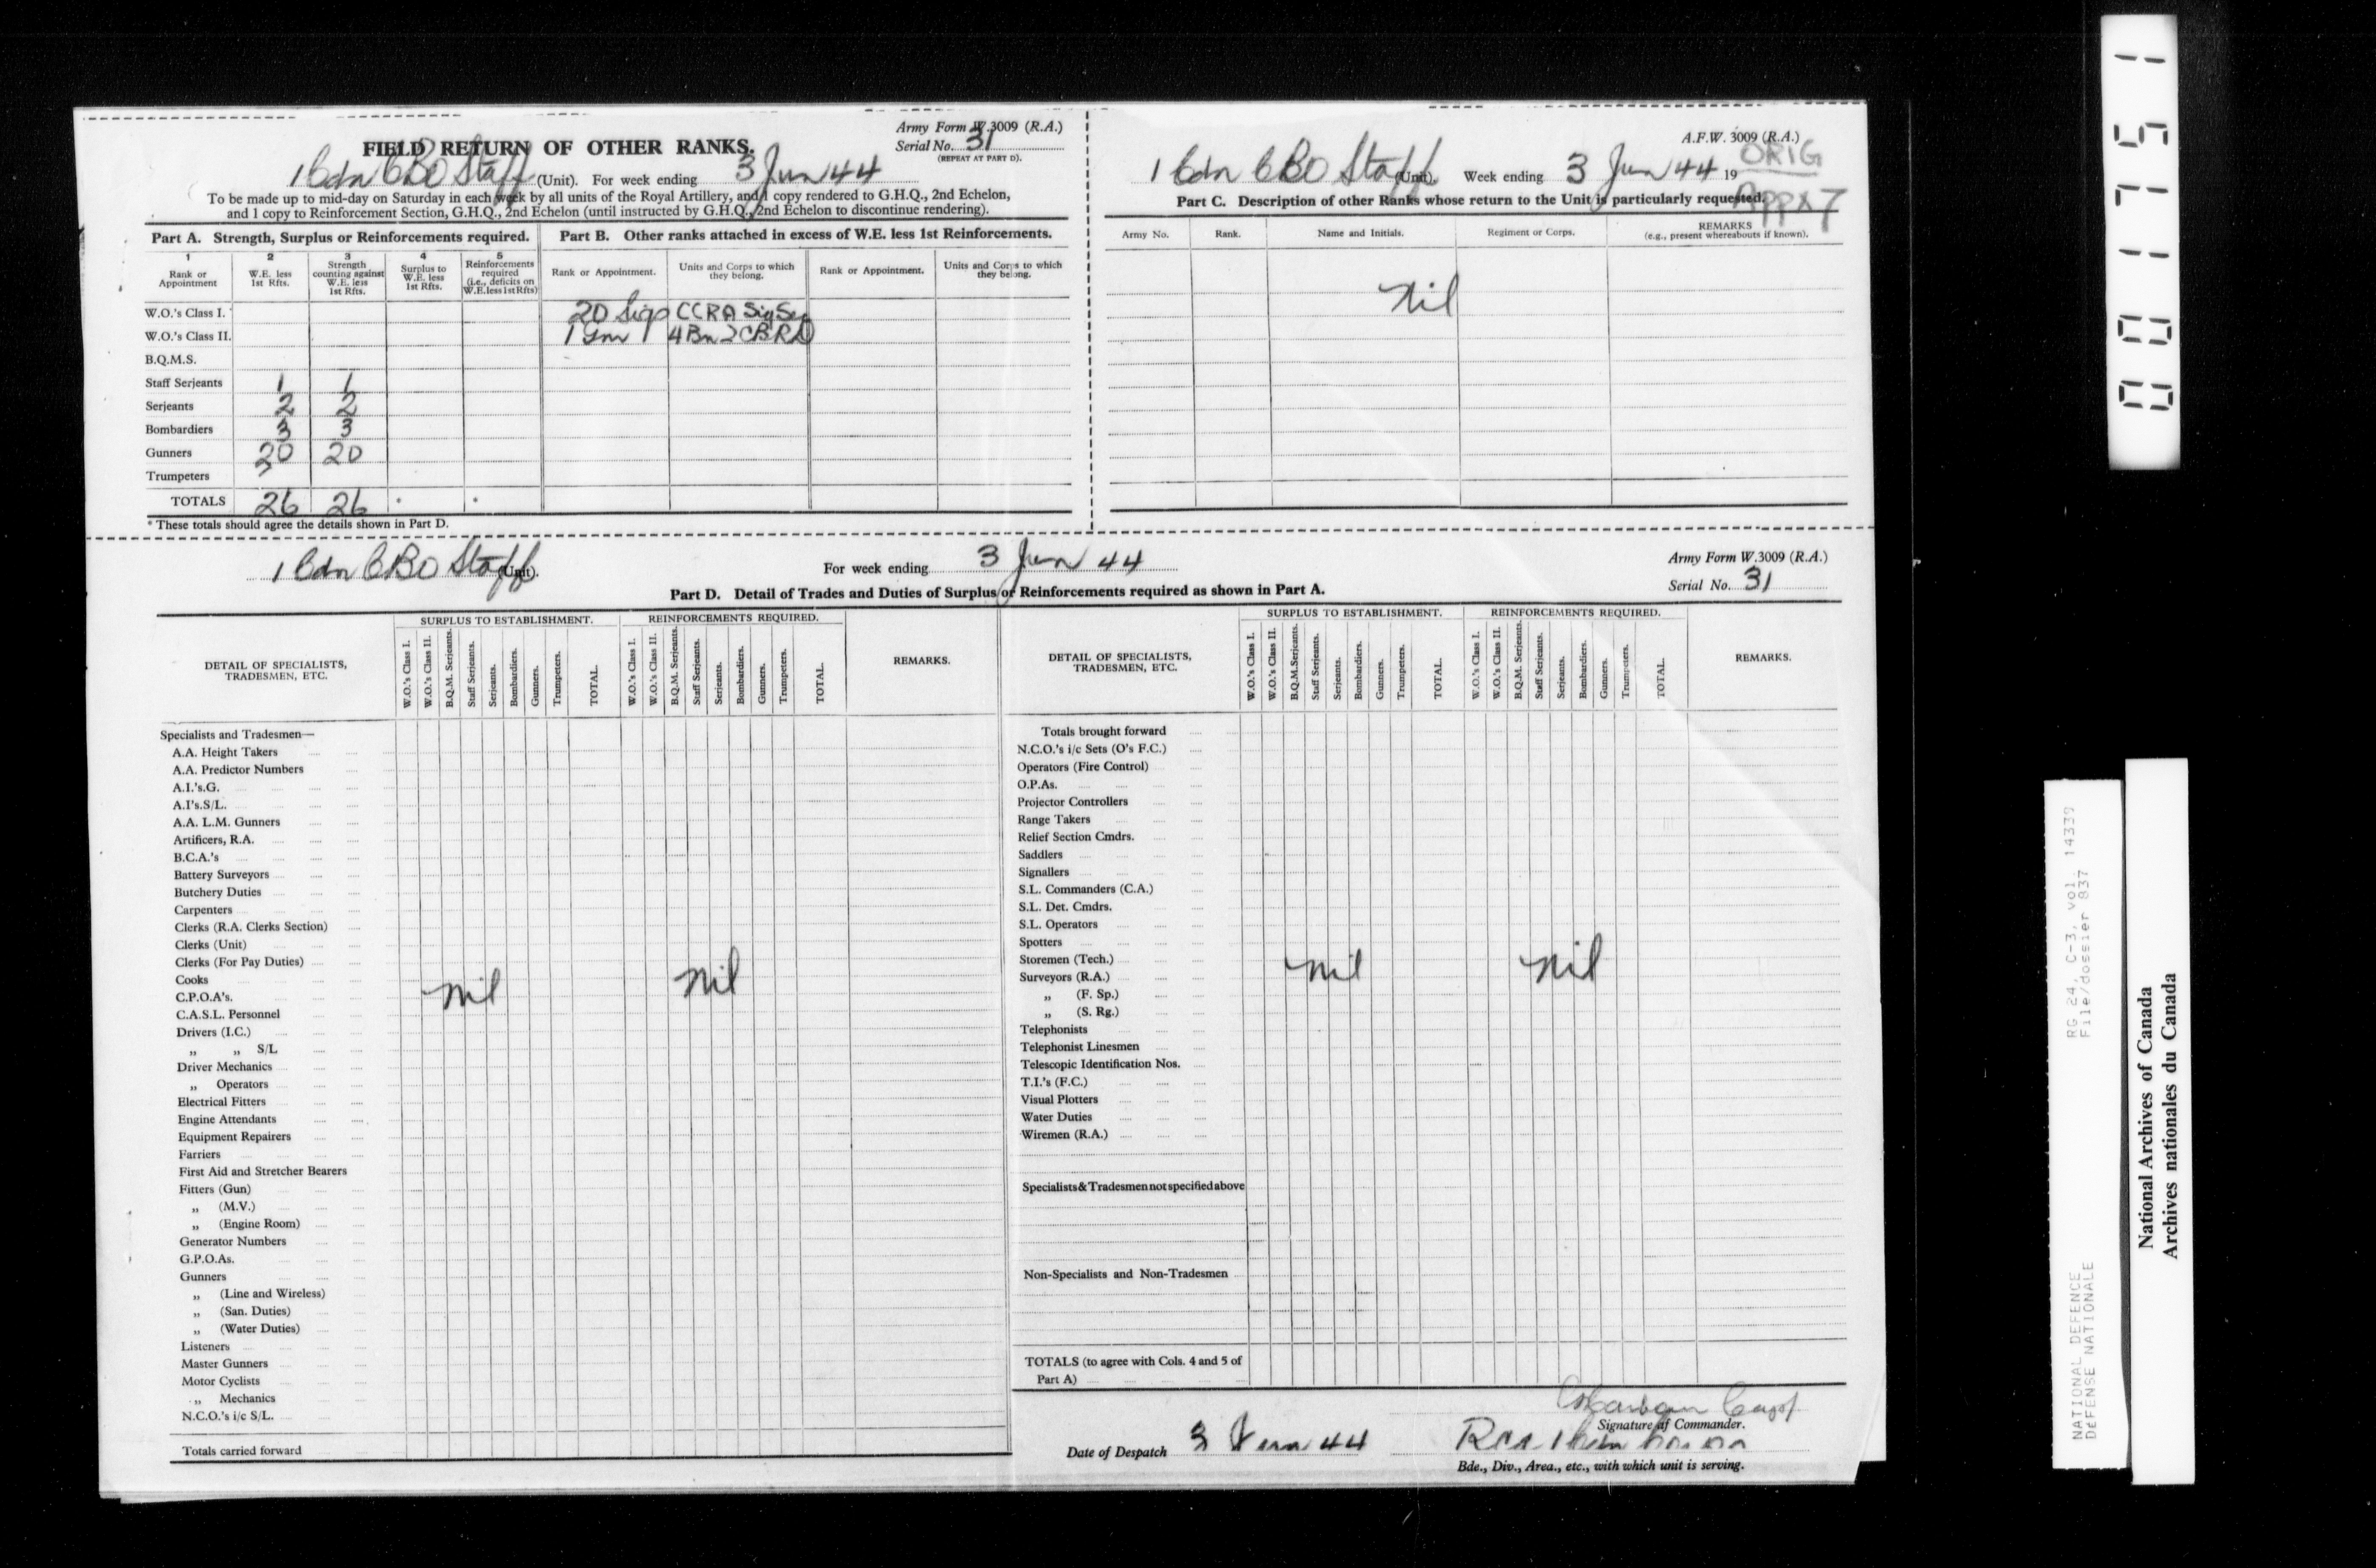 Army Form W.3009 (R.A.)
FIELD RETURN OF OTHER RANKS.
Serial No. 31
(REPEAT AT PART D).
1 Cdn CBO Staff (Unit). For week ending 3 Jun 44
To be made up to mid-day on Saturday in each week by all units of the Royal Artillery, and 1 copy rendered to G.H.Q., 2nd Echelon,
and 1 copy to Reinforcement Section, G.H.Q., 2nd Echelon (until instructed by G.H.Q., 2nd Echelon to discontinue rendering).
Part A. Strength, Surplus or Reinforcements required.
1 2 3 4 5
Rank or Appointment
W.E. less 1st Rfts.
Strength counting against W.E. less 1st Rfts.
Surplus to W.E. less 1st Rfts.
Reinforcements required (i.e., deficits on W.E. less 1st Rfts)
W.O.'s Class I.
W.O.'s Class II.
B.Q.M.S.
Staff Serjeants 1 1
Serjeants 2 2
Bombardiers 3 3
Gunners 20 20
Trumpeters
TOTALS 26 26 * *
* These totals should agree the details shown in Part D.
Part B. Other ranks attached in excess of W.E. less 1st Reinforcements.
Rank or Appointment.
Units and Corps to which they belong.
Rank or Appointment.
Units and Corps to which they belong.
20 Sigs CCRA Sig Sec
1 Gnr 4 Bn 2 CBRD
A.F.W. 3009 (R.A.)
ORIG
1 Cdn CBO Staff (Unit). Week ending 3 Jun 44 19
Appx 7
Part C. Description of other Ranks whose return to the Unit is particularly requested.
Army No.
Rank.
Name and Initials.
Regiment or Corps.
REMARKS
(e.g., present whereabouts if known).
Nil
1 Cdn CBO Staff (Unit).
For week ending 3 Jun 44
Army Form W.3009 (R.A.)
Serial No. 31
Part D. Detail of Trades and Duties of Surplus or Reinforcements required as shown in Part A.
DETAIL OF SPECIALISTS, TRADESMEN, ETC.
SURPLUS TO ESTABLISHMENT.
W.O.'s Class I.
W.O.'s Class II.
B.Q.M. Serjeants.
Staff Serjeants.
Serjeants.
Bombardiers.
Gunners.
Trumpeters.
TOTAL.
REINFORCEMENTS REQUIRED.
W.O.'s Class I.
W.O.'s Class II.
B.Q.M. Serjeants.
Staff Serjeants.
Serjeants.
Bombardiers.
Gunners.
Trumpeters.
TOTAL.
REMARKS.
Specialists and Tradesmen—
A.A. Height Takers
A.A. Predictor Numbers
A.I.'s.G.
A.I's.S/L.
A.A. L.M. Gunners
Artificers, R.A.
B.C.A.'s
Battery Surveyors
Butchery Duties
Carpenters
Clerks (R.A. Clerks Section)
Clerks (Unit)
Clerks (For Pay Duties)
Cooks
C.P.O.A's.
Nil Nil
C.A.S.L. Personnel
Drivers (I.C.)
„ „ S/L
Driver Mechanics
„ Operators
Electrical Fitters
Engine Attendants
Equipment Repairers
Farriers
First Aid and Stretcher Bearers
Fitters (Gun)
„ (M.V.)
„ (Engine Room)
Generator Numbers
G.P.O.As.
Gunners
„ (Line and Wireless)
„ (San. Duties)
„ (Water Duties)
Listeners
Master Gunners
Motor Cyclists
„ Mechanics
N.C.O.'s i/c S/L.
Totals carried forward
DETAIL OF SPECIALISTS, TRADESMEN, ETC.
SURPLUS TO ESTABLISHMENT.
W.O.'s Class I.
W.O.'s Class II.
B.Q.M. Serjeants.
Staff Serjeants.
Serjeants.
Bombardiers.
Gunners.
Trumpeters.
TOTAL.
REINFORCEMENTS REQUIRED.
W.O.'s Class I.
W.O.'s Class II.
B.Q.M. Serjeants.
Staff Serjeants.
Serjeants.
Bombardiers.
Gunners.
Trumpeters.
TOTAL.
REMARKS.
Totals brought forward
N.C.O.'s i/c Sets (O's F.C.)
Operators (Fire Control)
O.P.As.
Projector Controllers
Range Takers
Relief Section Cmdrs.
Saddlers
Signallers
S.L. Commanders (C.A.)
S.L. Det. Cmdrs.
S.L. Operators
Spotters
Storemen (Tech.)
Nil Nil
Surveyors (R.A.)
„ (F. Sp.)
„ (S. Rg.)
Telephonists
Telephonist Linesmen
Telescopic Identification Nos.
T.I.'s (F.C.)
Visual Plotters
Water Duties
Wiremen (R.A.)
Specialists & Tradesmen not specified above
Non-Specialists and Non-Tradesmen
TOTALS (to agree with Cols. 4 and 5 of Part A)
Capt
Signature of Commander.
Date of Despatch 3 Jun 44
Bde., Div., Area., etc., with which unit is serving.
0 0 1 1 7 5 1
RG 24, C-3, vol. 14339
File/dossier 837
NATIONAL DEFENCE
DEFENSE NATIONALE
National Archives of Canada
Archives nationales du Canada